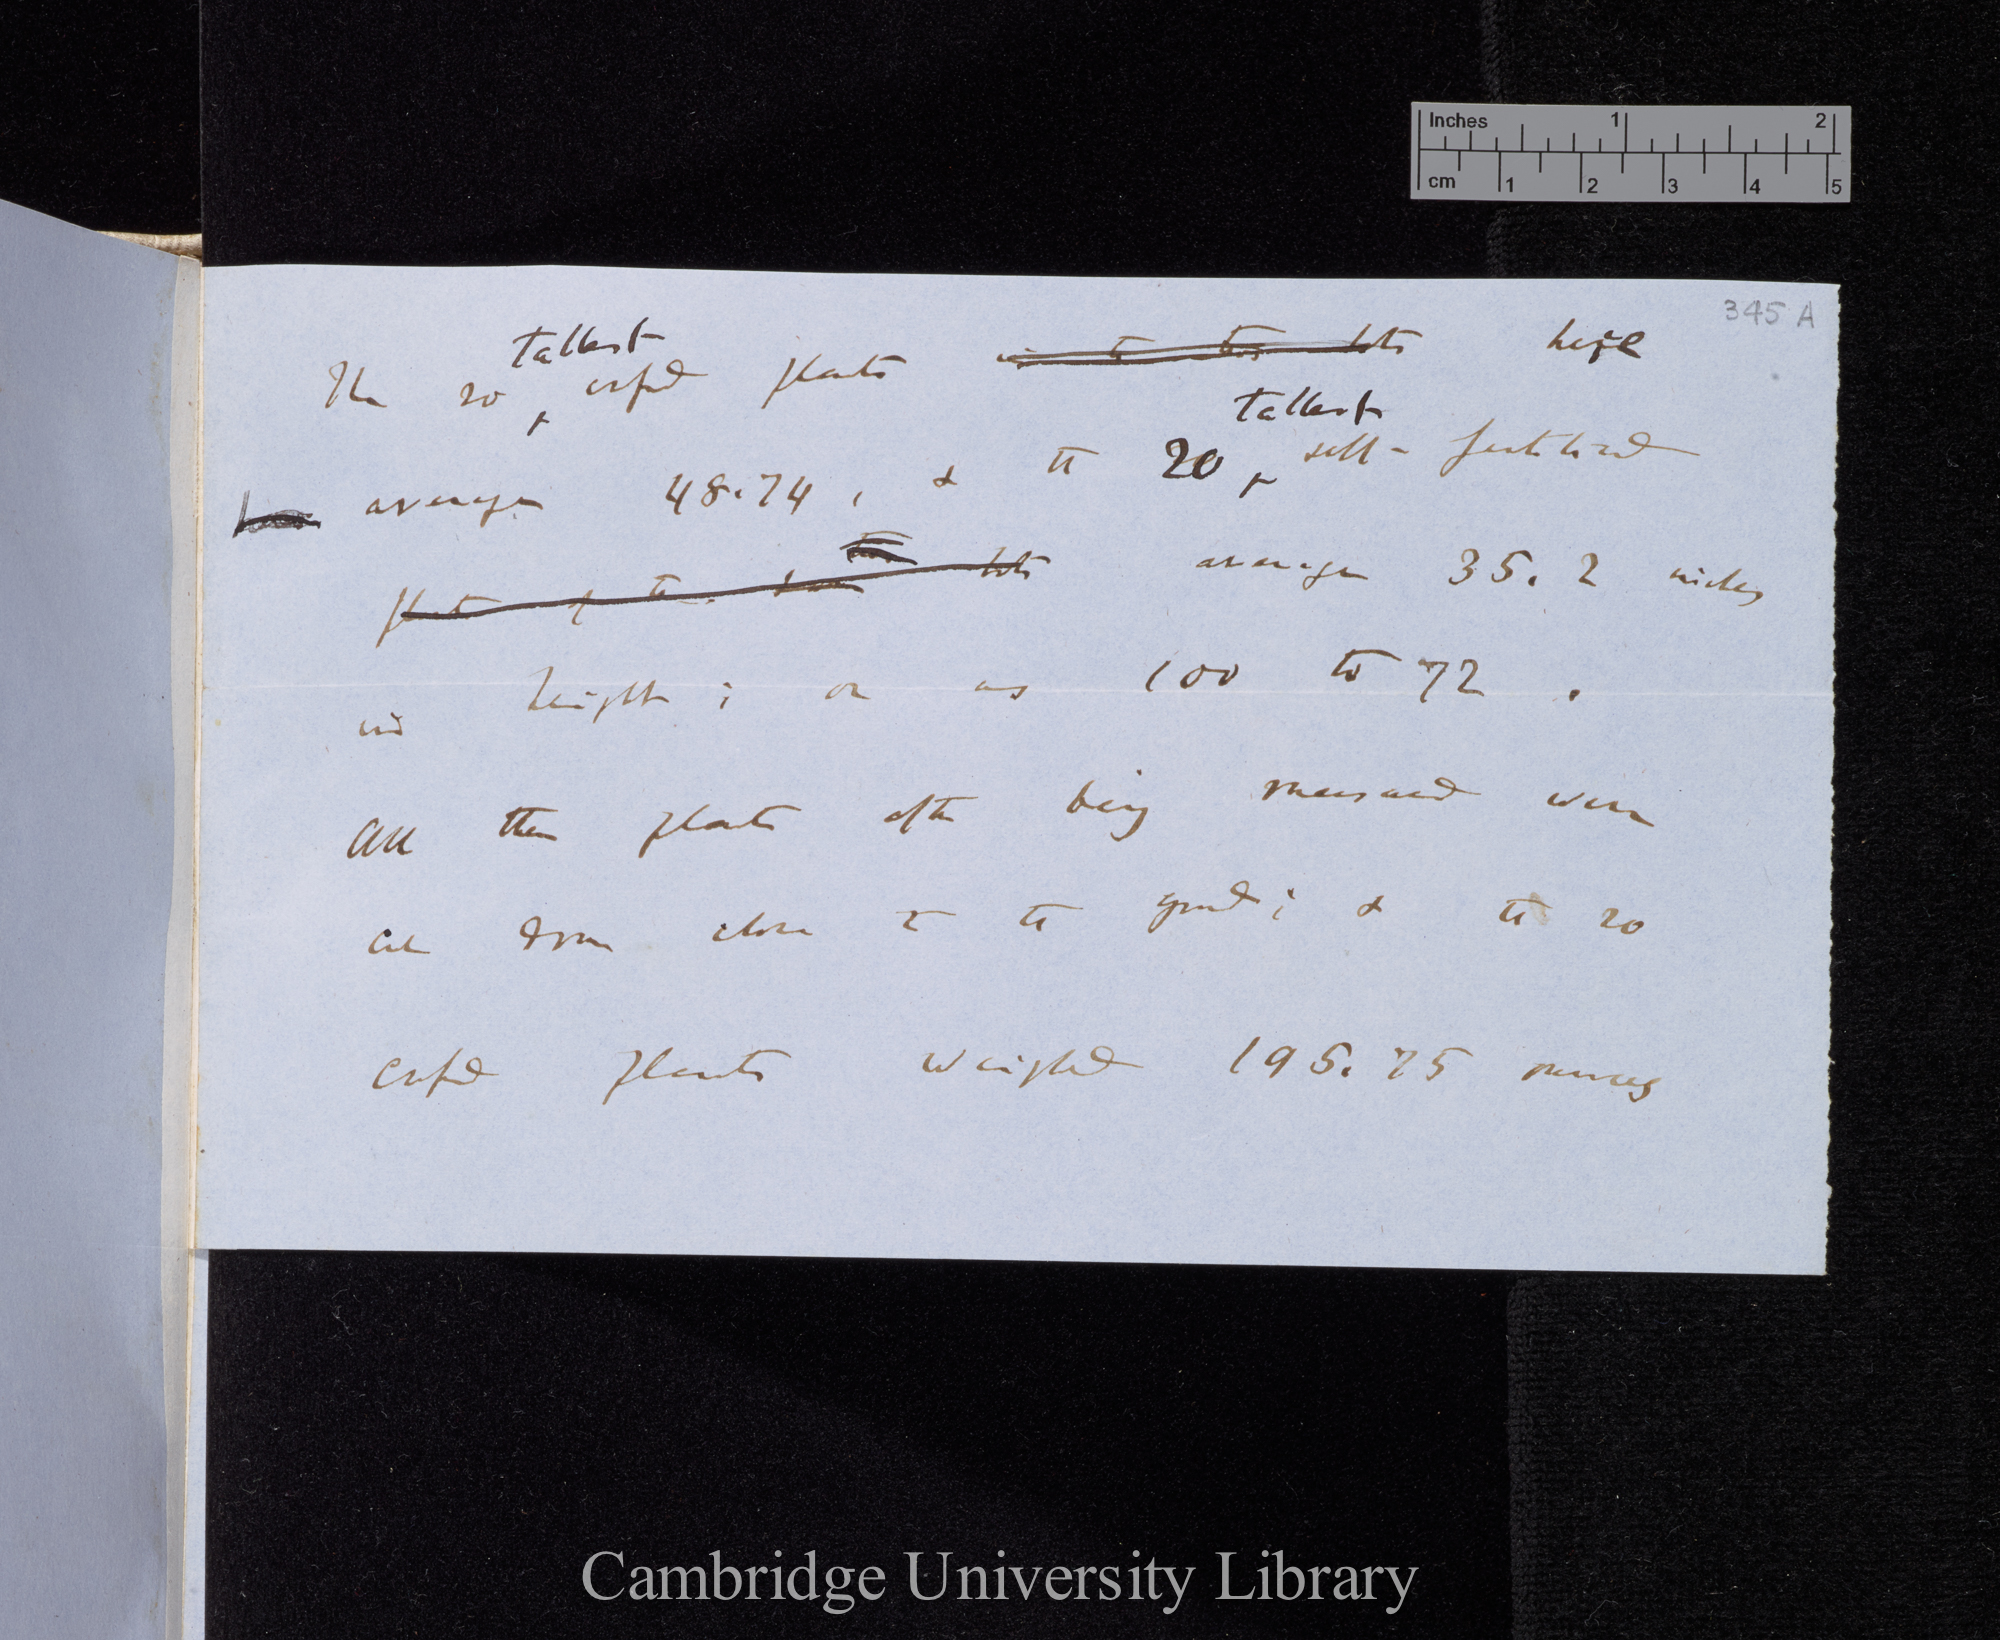 345 A
The 20 tallest crossed plants in the two lots here
average 48.74, & the 20 tallest self-fertilised
plants of the two lots average 35.2 inches
in height; or as 100 to 72.
All the plants after being measured were
cut down close to the ground; & the 20
crossed plants weighed 195.75 ounces
Inches 1 2
cm 1 2 3 4 5
Cambridge University Library